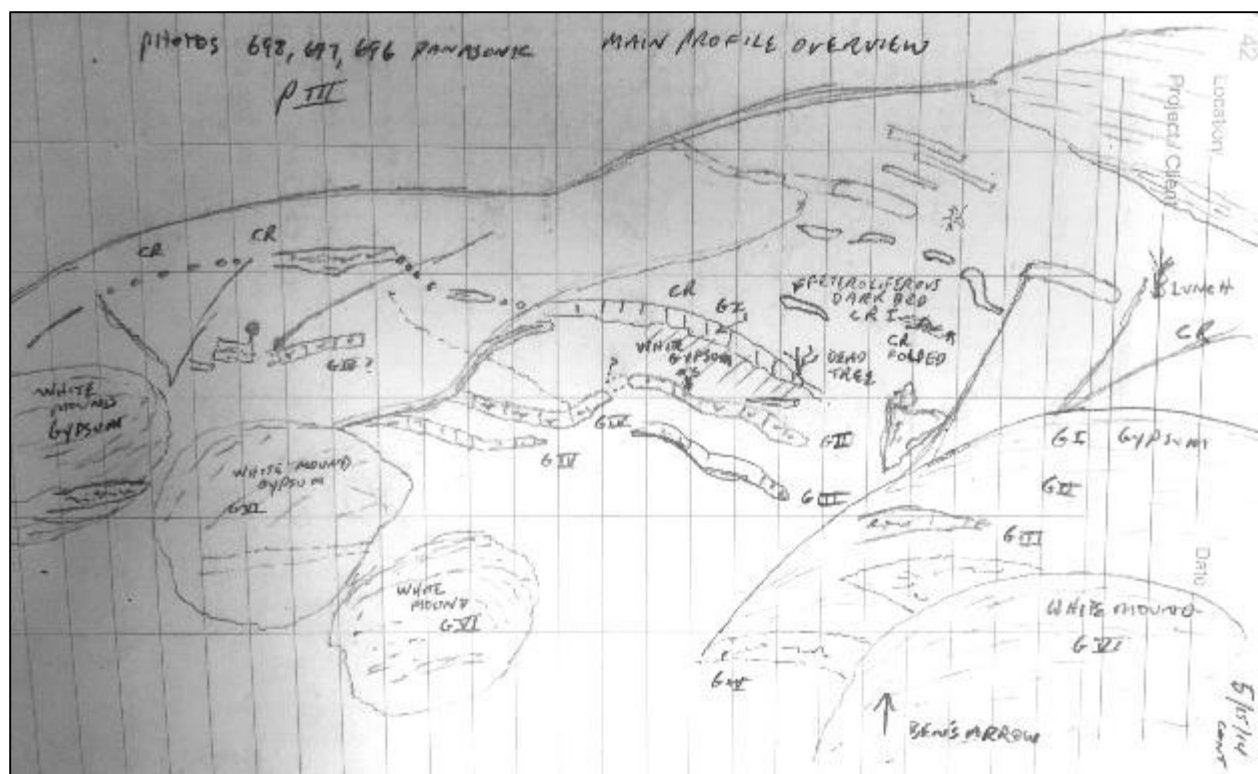 PHOTOS 698, 697, 696 PANASONIC
MAIN PROFILE OVERVIEW
P III
42
Location
Project / Client
CR
CR
CR
GI
PETROLIFEROUS
DARK BED
CR
CR
FOLDED
LUNCH
CR
WHITE
GYPSUM
DEAD
TREE
GIII?
WHITE
MOUNDS
GYPSUM
GIV
GII
GIII
WHITE MOUND
GYPSUM
GVI
GI GYPSUM
GII
GIII
WHITE
MOUND
GVI
Date
WHITE MOUND
GVI
BEN'S ARROW
5/15/14
CONT